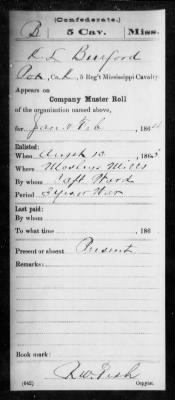 (Confederate.)
B 5 Cav. Miss.
R L Burford
Pvt, Co. K, 5 Reg't Mississippi Cavalry.
Appears on
Company Muster Roll
of the organization named above,
for Jan & Feb, 1864
Enlisted:
When Augst 10, 1863
Where Mosleys Mills
By whom Capt Ward
Period 3 years War
Last paid:
By whom
To what time , 186
Present or absent Present
Remarks:
Book mark:
(642) Copyist.